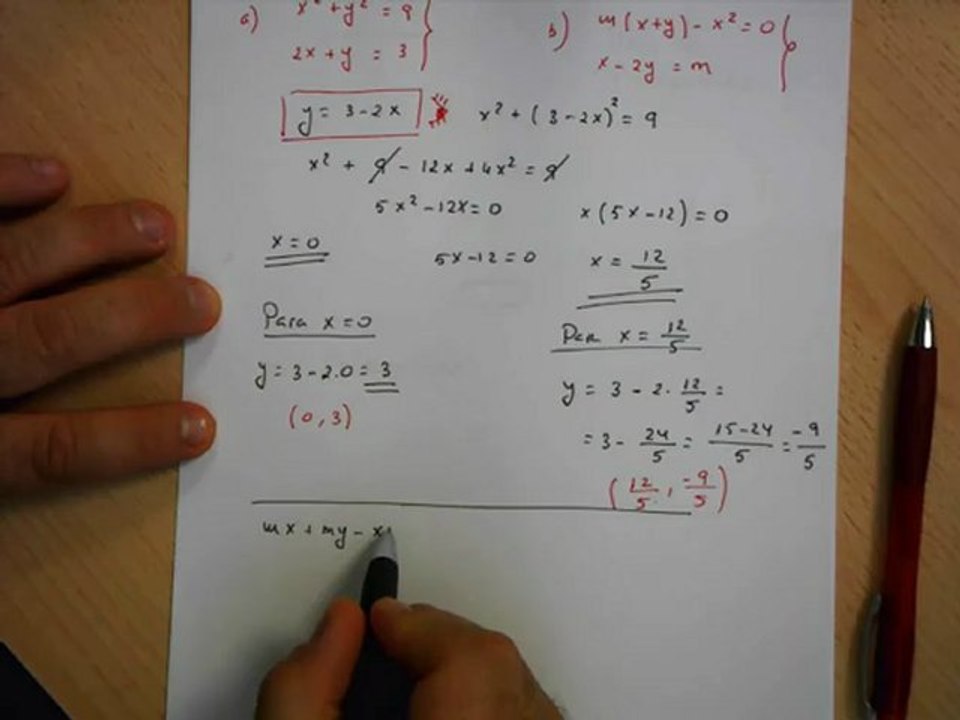 a) x² + y² = 9
2x + y = 3
b) m(x+y) - x² = 0
x - 2y = m
y = 3 - 2x
x² + (3 - 2x)² = 9
x² + 9 - 12x + 4x² = 9
5x² - 12x = 0
x(5x - 12) = 0
x = 0
5x - 12 = 0
x = 12/5
Para x = 0
y = 3 - 2.0 = 3
(0, 3)
Para x = 12/5
y = 3 - 2 · 12/5 =
= 3 - 24/5 = 15-24/5 = -9/5
(12/5, -9/5)
mx + my - x